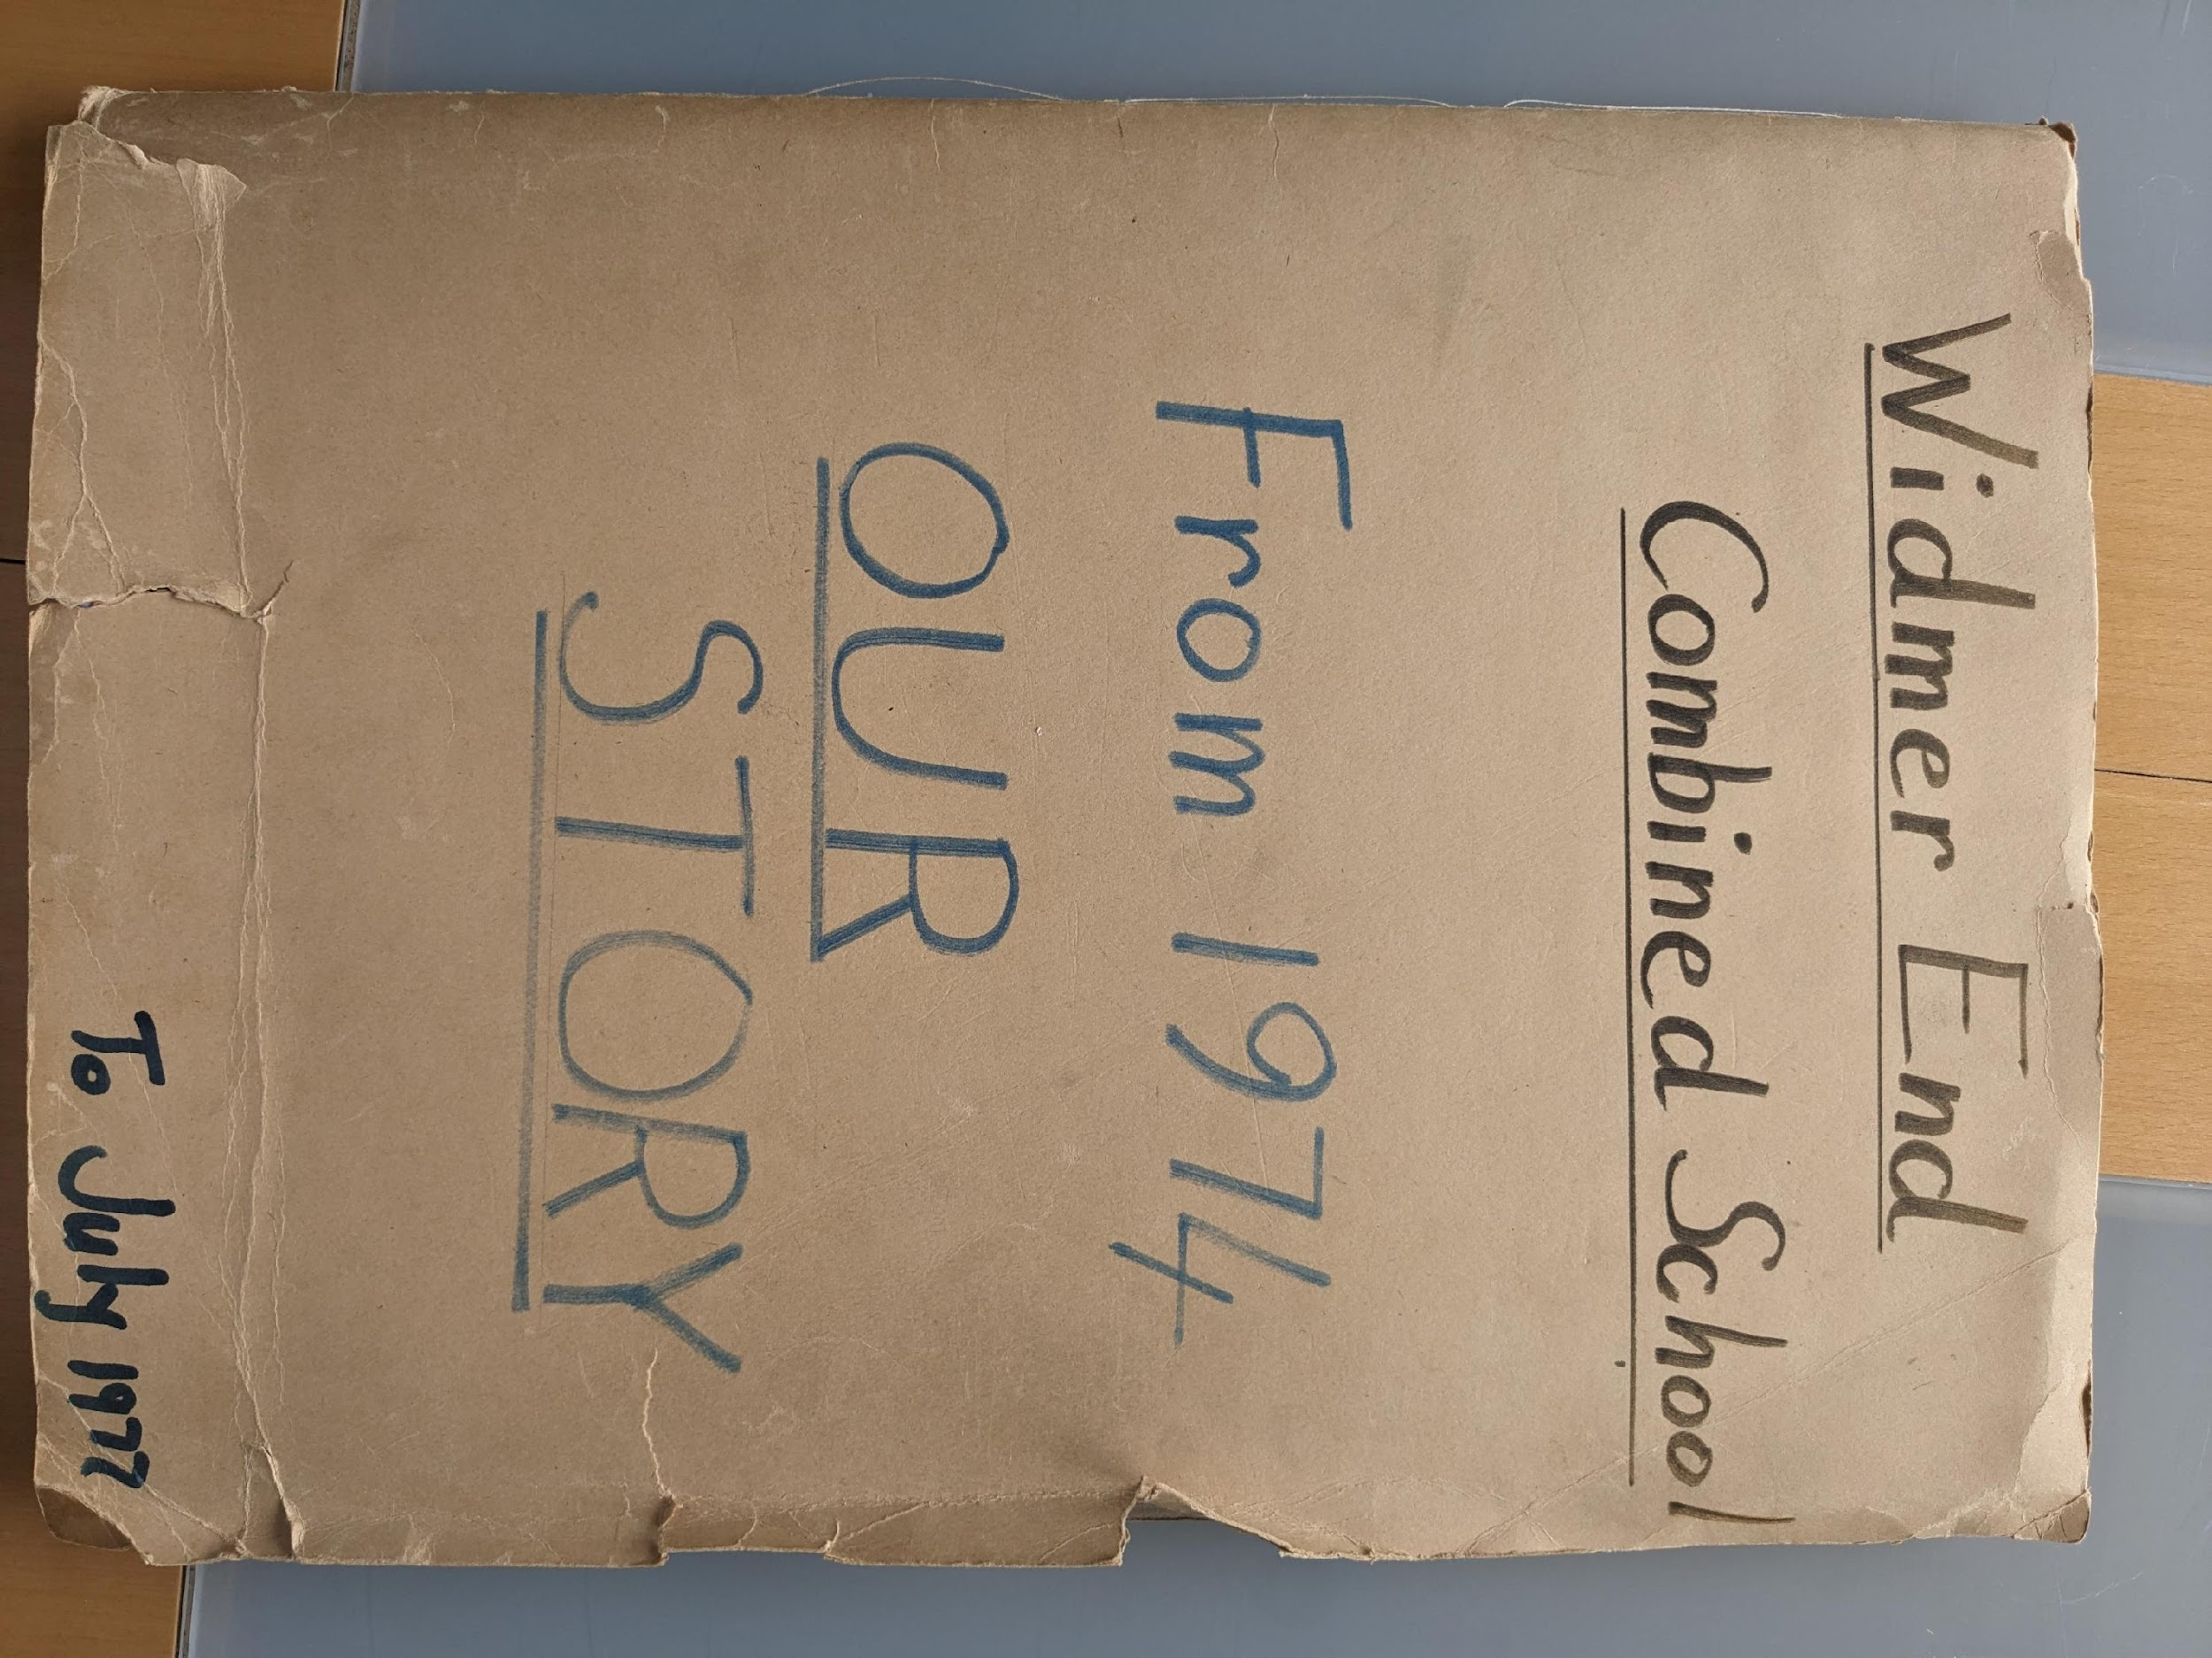 Widmer End
Combined School
From 1974
OUR
STORY
To July 1977